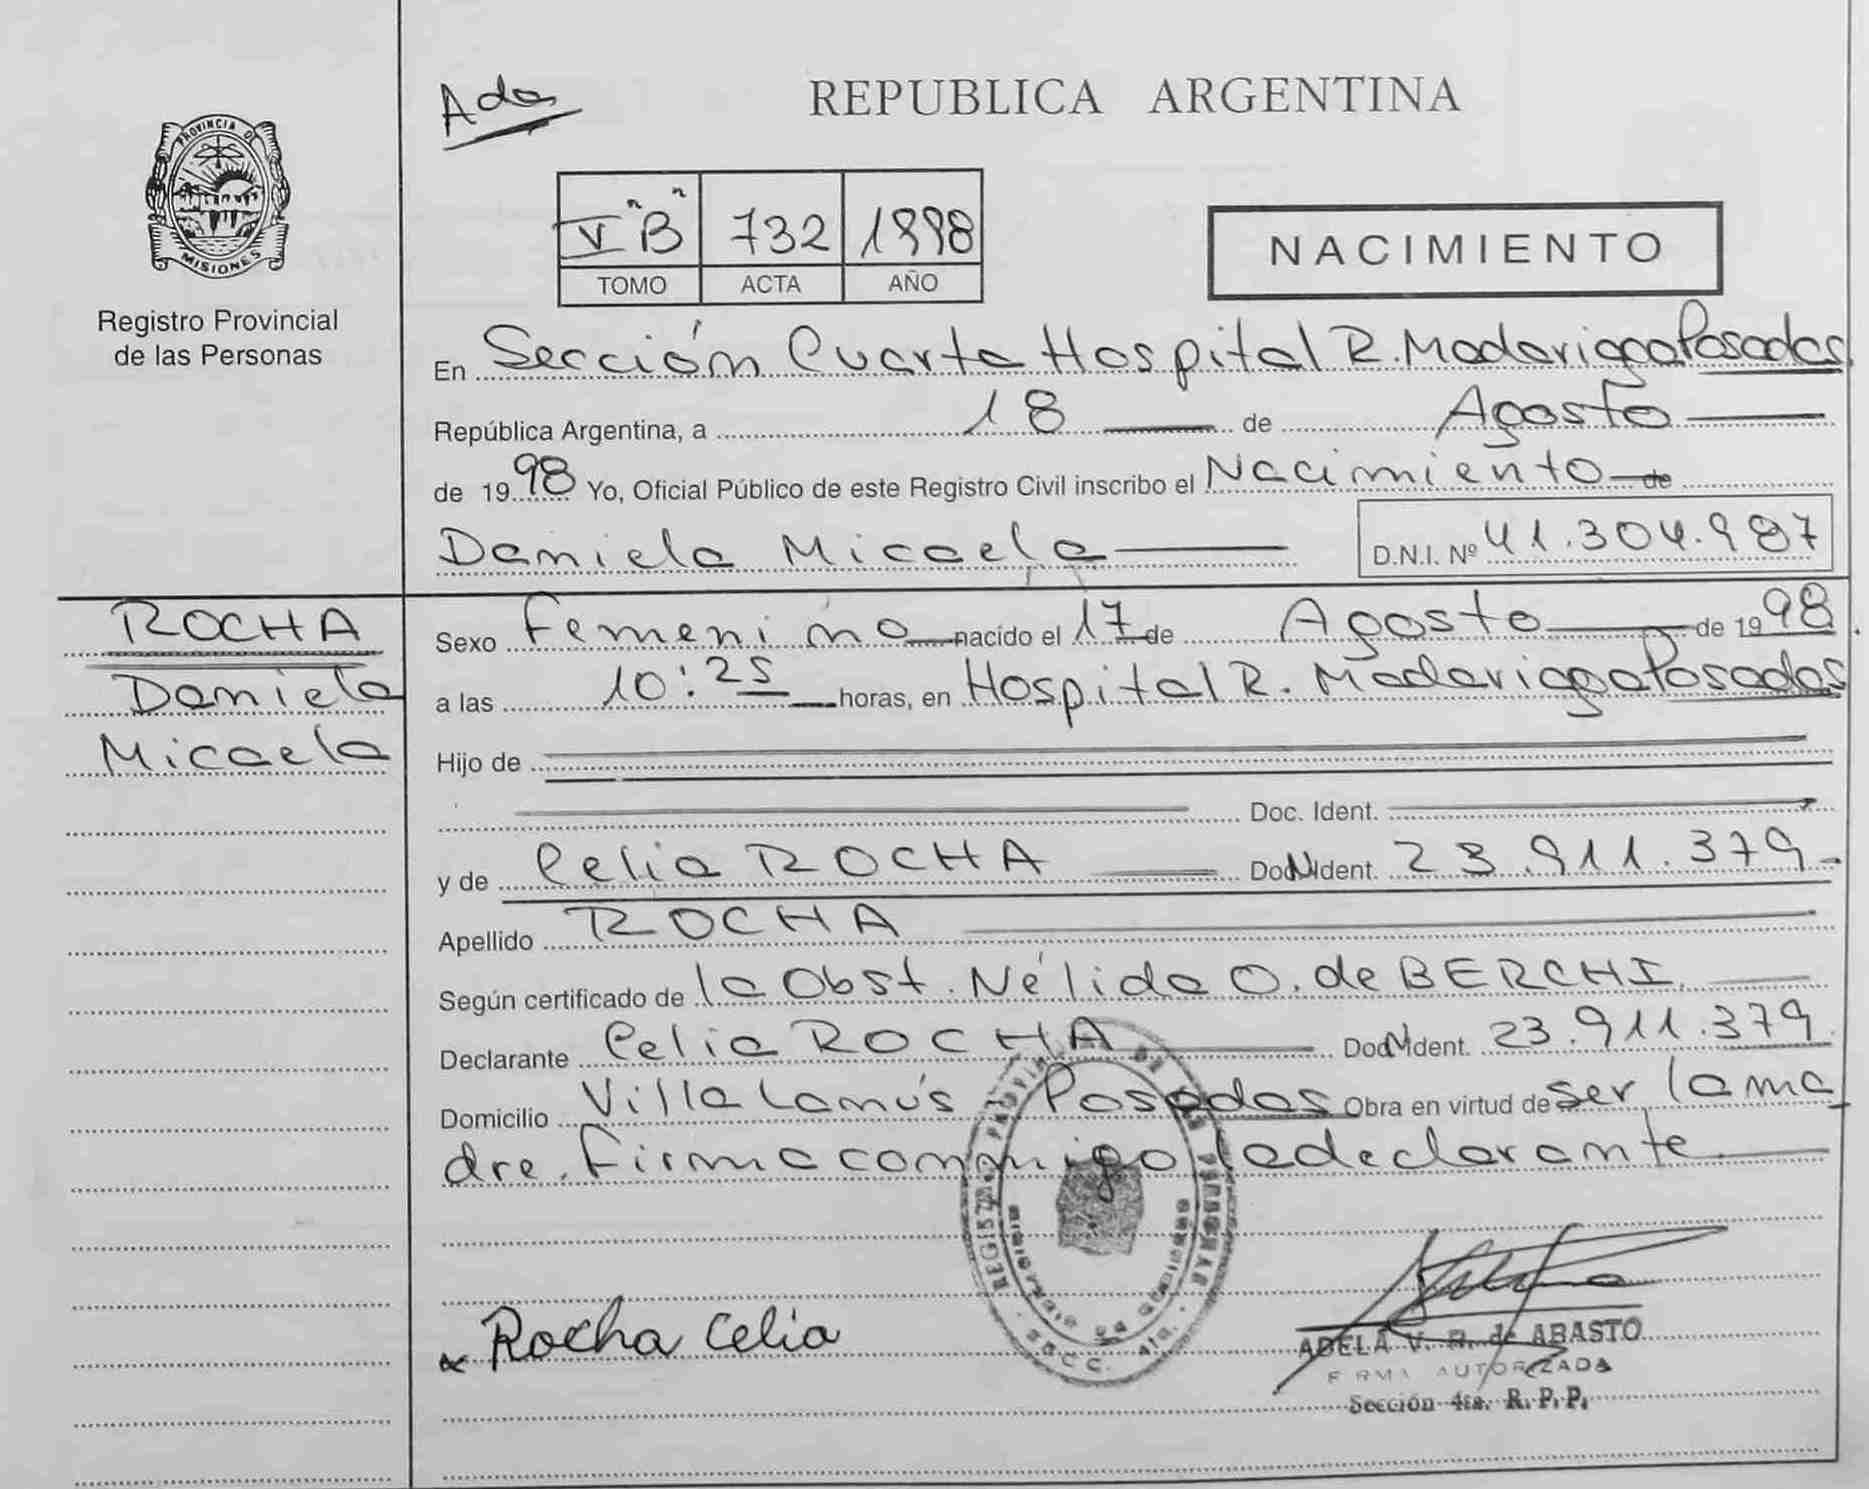 Ada
REPUBLICA ARGENTINA
PROVINCIA DE
MISIONES
Registro Provincial
de las Personas
V "B" 732 1998
TOMO ACTA AÑO
NACIMIENTO
En Sección Cuarta Hospital R. Madariaga Posadas
República Argentina, a 18 de Agosto
de 1998 Yo, Oficial Público de este Registro Civil inscribo el Nacimiento de
Daniela Micaela D.N.I. Nº 41.304.987
ROCHA
Daniela
Micaela
Sexo Femenino nacido el 17 de Agosto de 1998
a las 10:25 horas, en Hospital R. Madariaga Posadas
Hijo de
Doc. Ident.
y de Celia ROCHA Doc Ident. 23.911.379
Apellido ROCHA
Según certificado de la Obst. Nélida O. de BERCHI
Declarante Celia ROCHA Doc Ident. 23.911.379
Domicilio Villa Lanús Posadas Obra en virtud de ser la ma
dre. Firma conmigo la declarante
REGISTRO PROVINCIAL DE LAS PERSONAS
SECC. 4ta.
Rocha Celia
ADELA V. R. de ABASTO
FIRMA AUTORIZADA
Sección 4ta. R. P. P.